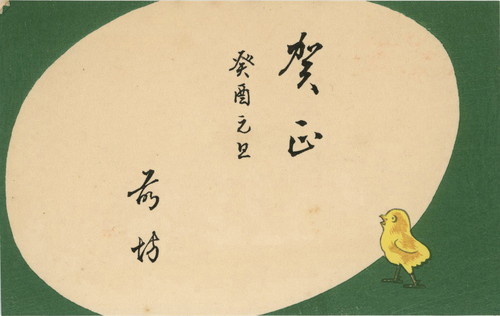 賀正
癸酉元旦
坊